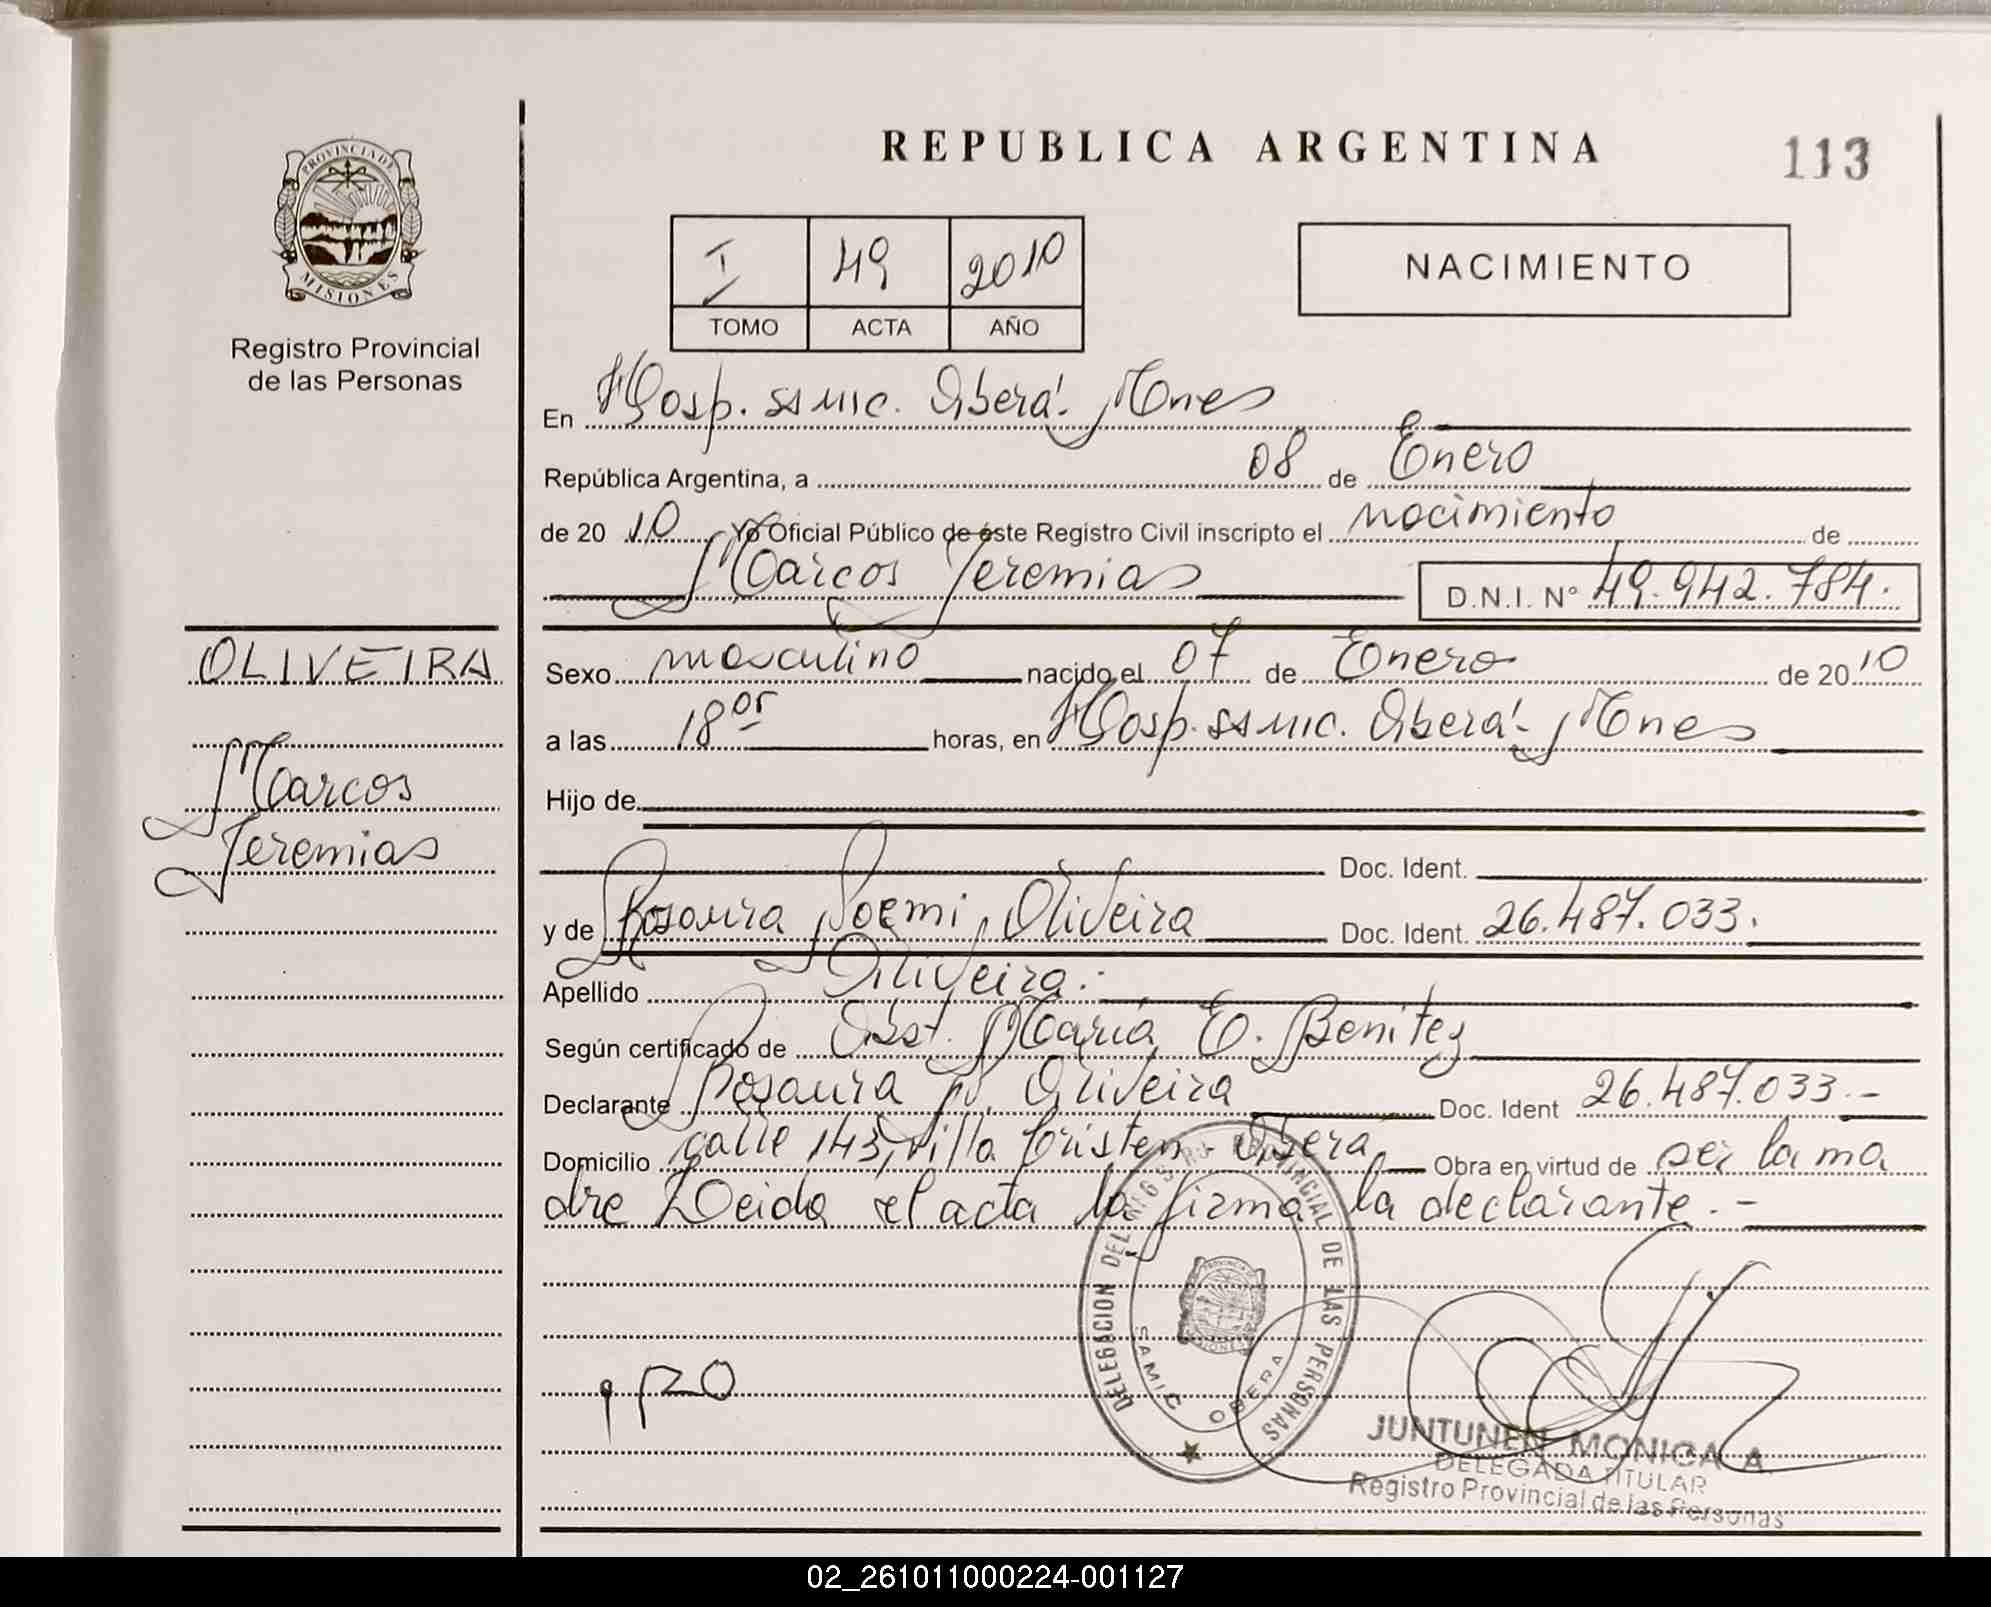 PROVINCIA DE
MISIONES
Registro Provincial
de las Personas
OLIVEIRA
Marcos
Jeremias
REPUBLICA ARGENTINA
113
I 49 2010
TOMO ACTA AÑO
NACIMIENTO
En Hosp. SAMIC. Oberá - Mnes
República Argentina, a 08 de Enero
de 20 10 Yo Oficial Público de éste Registro Civil inscripto el nacimiento de
Marcos Jeremias D.N.I. N° 49.942.784.
Sexo masculino nacido el 07 de Enero de 20 10
a las 18 05 horas, en Hosp. SAMIC. Oberá - Mnes
Hijo de
Doc. Ident.
y de Rosaura Noemi Oliveira Doc. Ident. 26.487.033.
Apellido Oliveira.
Según certificado de Obst. María E. Benitez
Declarante Rosaura N. Oliveira Doc. Ident 26.487.033.-
Domicilio calle 143, Villa Cristen - Oberá Obra en virtud de ser la ma
dre Leida el acta la firma la declarante.-
DELEGACION DEL REGISTRO PROVINCIAL DE LAS PERSONAS
PROVINCIA DE
MISIONES
SAMIC OBERA
JUNTUNEN MONICA A
DELEGADA TITULAR
Registro Provincial de las Personas
02_261011000224-001127